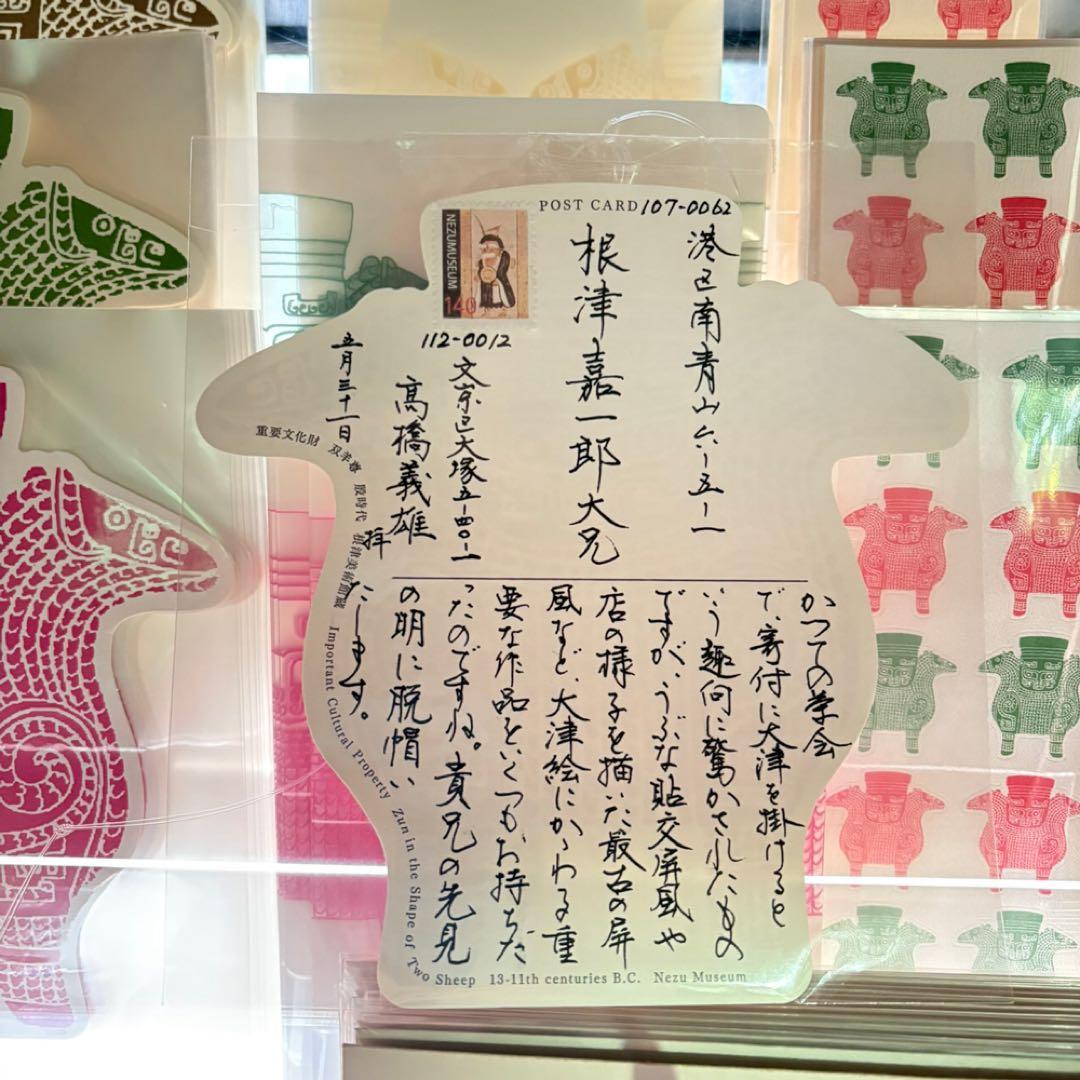 POST CARD
107-0062
港区南青山六-五-一
根津嘉一郎大兄
NEZUMUSEUM
140
112-0012
文京区大塚五-四〇-一
高橋義雄
拝
五月三十一日
かつての茶会
で、寄付に大津を掛けると
いう趣向に驚かされたもの
ですが、うぶな貼交屏風や
店の様子を描いた最古の屏
風など、大津絵にかかわる重
要な作品をいくつもお持ちだ
ったのですね。貴兄の先見
の明に脱帽い
たします。
重要文化財 双羊尊 殷時代 根津美術館蔵 Important Cultural Property Zun in the Shape of Two Sheep 13-11th centuries B.C. Nezu Museum